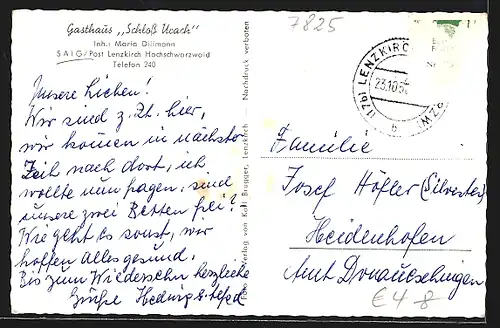 Gasthaus „Schloß Urach"
Inh.: Maria Dillmann
SAIG/Post Lenzkirch Hochschwarzwald
Telefon 240
Unsere Lieben!
Wir sind z. Zt. hier,
wir kommen in nächster
Zeit nach dort, ich
wollte nun fragen, sind
unsere zwei Betten frei?
Wie geht es sonst, wir
hoffen alles gesund.
Bis zum Wiedersehn herzliche
Grüße Hedwig &
Foto u. Verlag von Karl Brugger, Lenzkirch — Nachdruck verboten
7825
(17b) LENZKIRCH
23.10.5
b
Familie
Josef Höfler (Silvester)
Heidenhofen
Amt Donaueschingen
€ 4 8